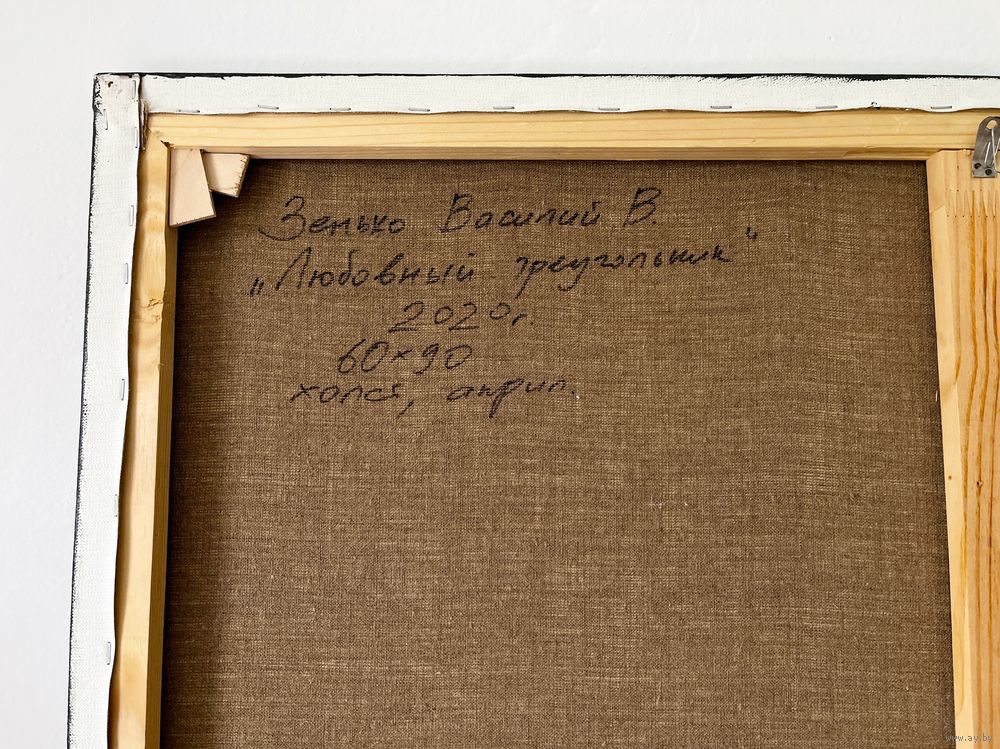 Зенько Василий В.
„Любовный треугольник"
2020г.
60×90
холст, акрил.
www.ay.by